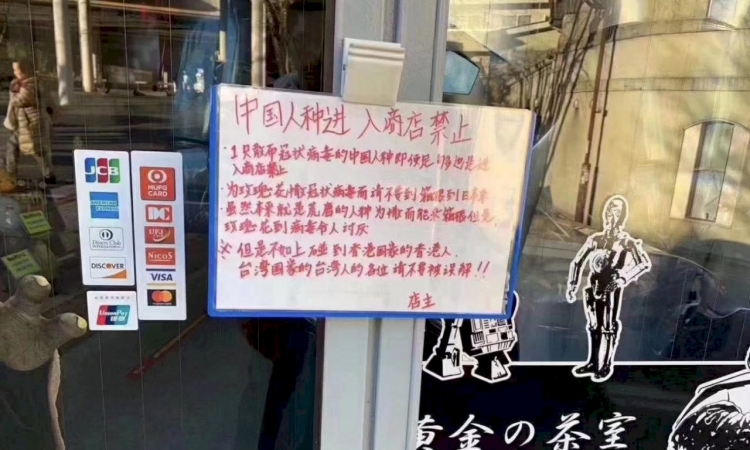 中国人种进 入商店禁止
・1只散布冠状病毒的中国人种即使足1步也是进
入商店禁止
・为玫瑰花撒冠状病毒而请不要到箱根到日本来
・虽然本来就是荒磨的人种为撒而能来箱根但是,
玫瑰花到病毒有人讨厌
※ 但是不如上碰到香港国家的香港人.
台湾国家的台湾人的各位请不要被误解!!
店主
JCB
AMERICAN EXPRESS
Diners Club
INTERNATIONAL
DISCOVER
UnionPay
银联
MUFG
CARD
DC
UFJ
NICOS
VISA
黄金の茶室